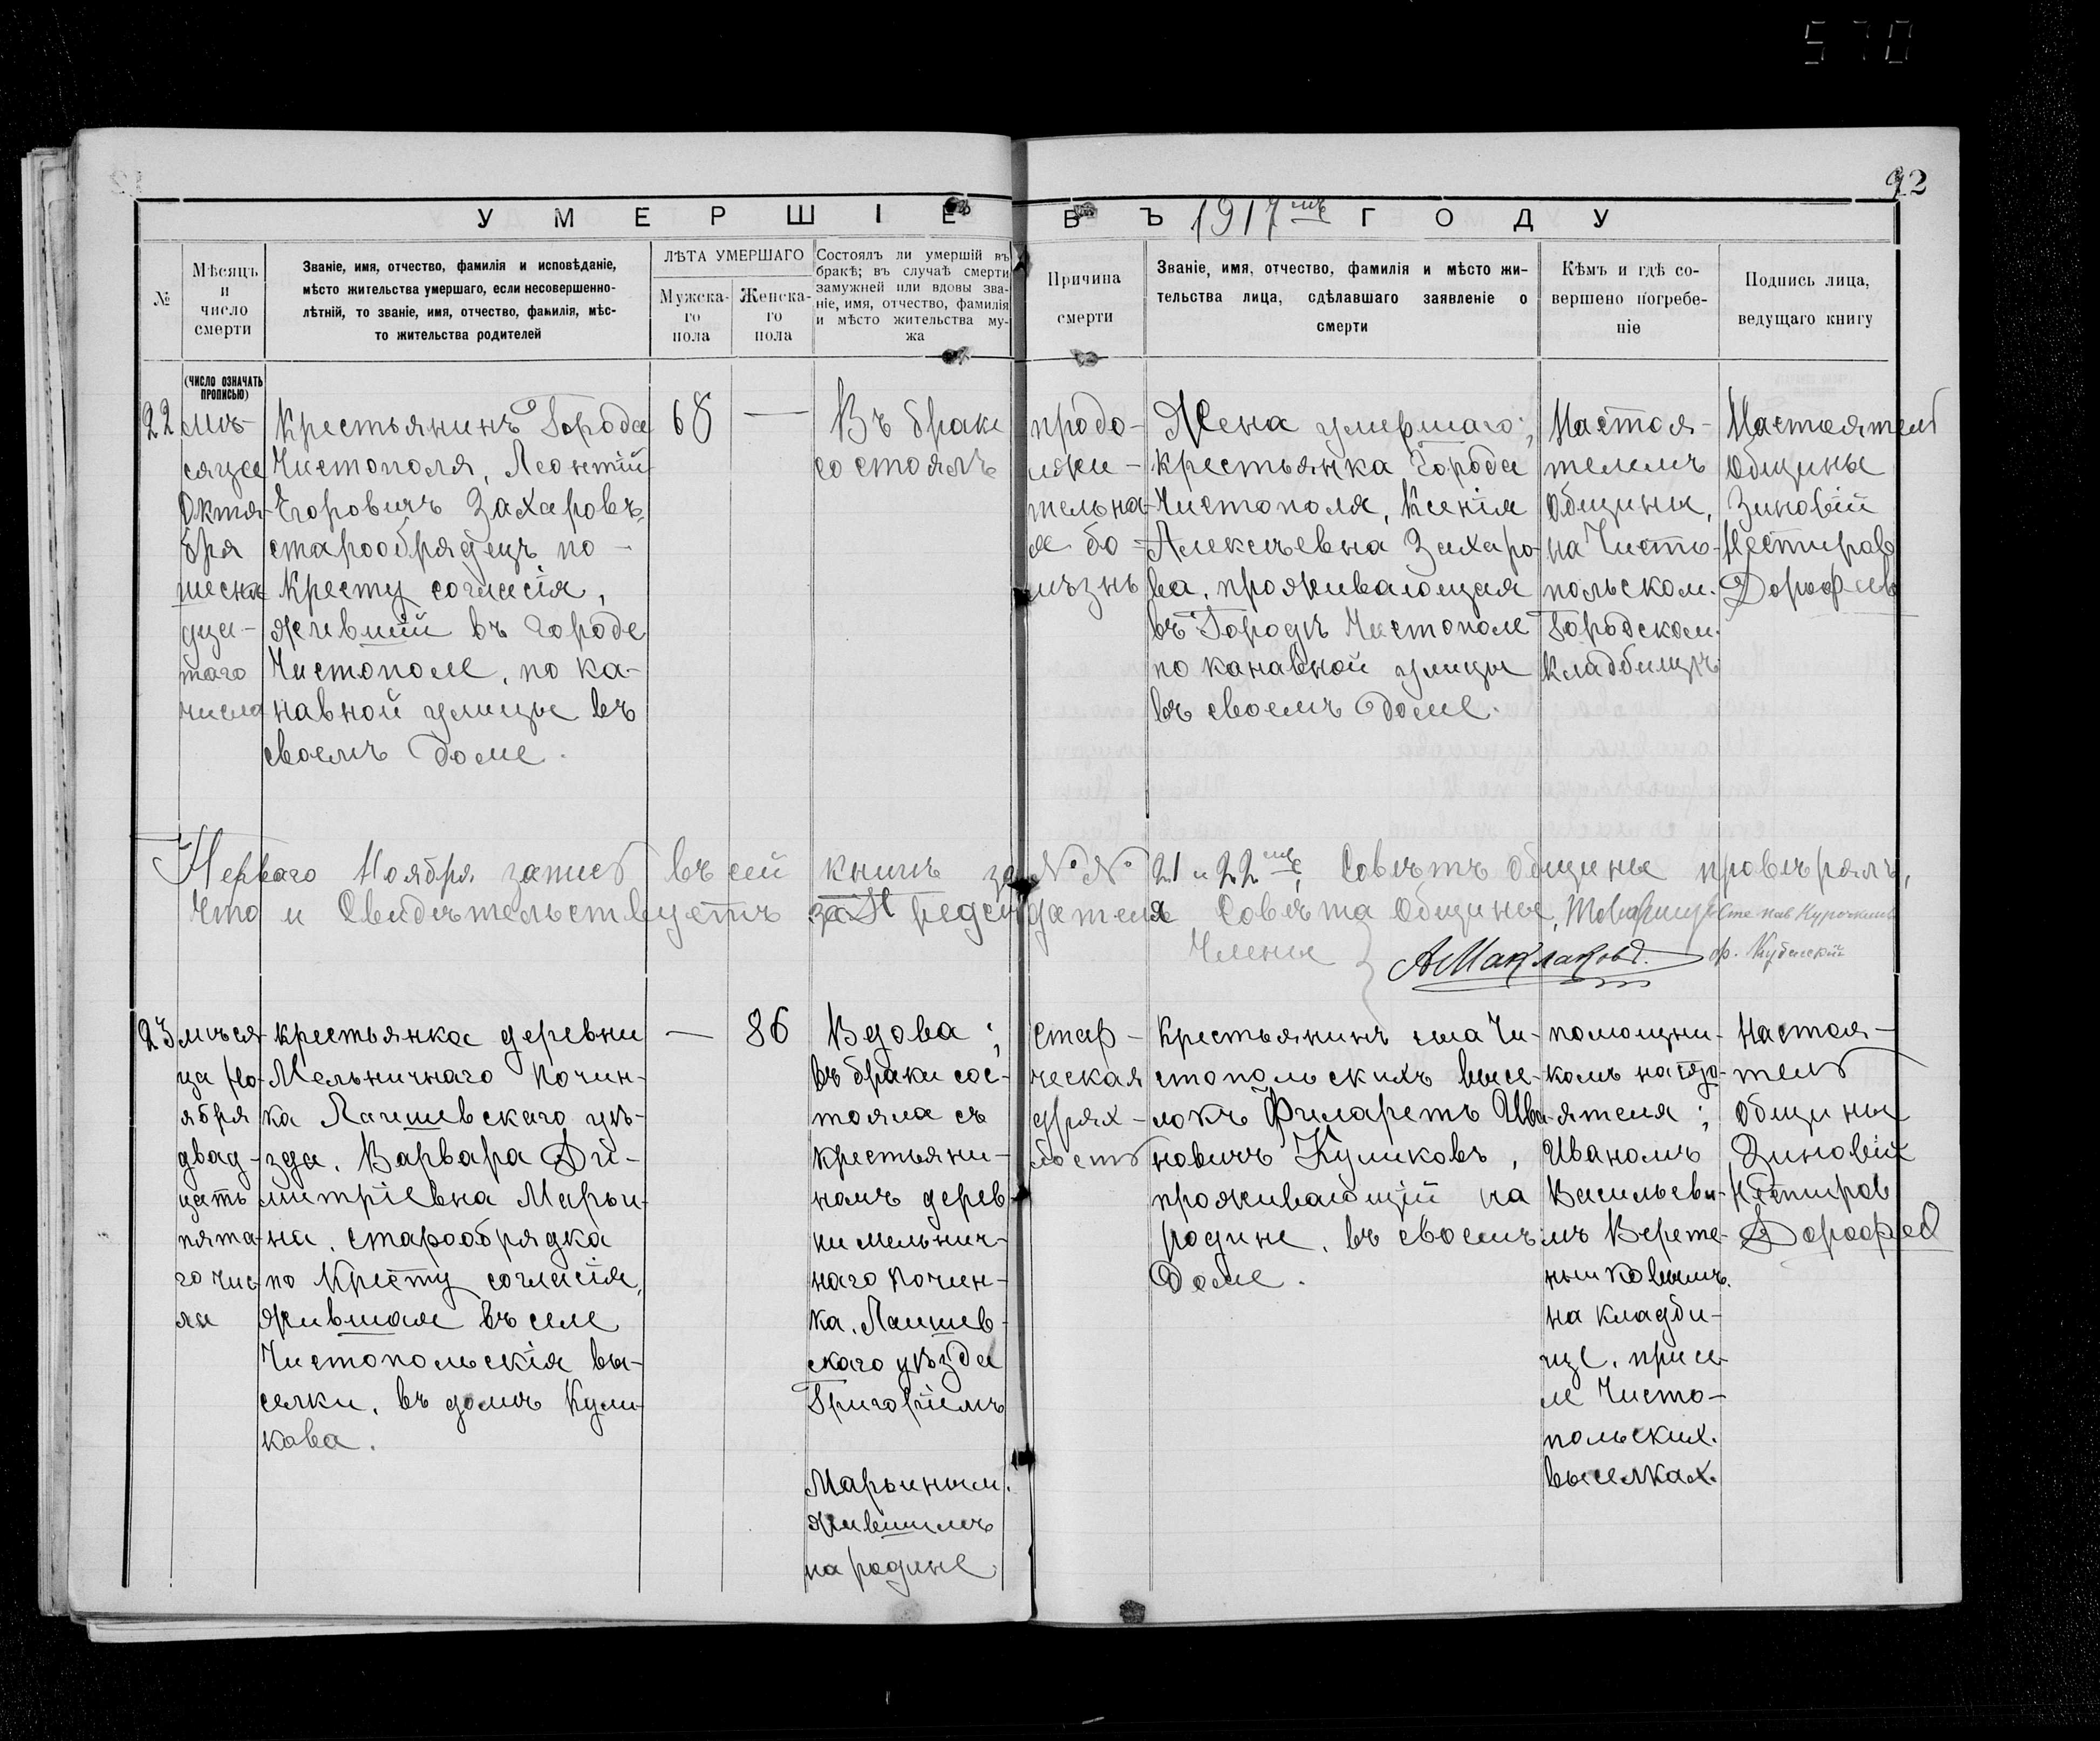 570
92
УМЕРШІЕ ВЪ 1917мъ ГОДУ
№
Мѣсяцъ
и
число
смерти
Званіе, имя, отчество, фамилія и исповѣданіе,
мѣсто жительства умершаго, если несовершенно-
лѣтній, то званіе, имя, отчество, фамилія, мѣс-
то жительства родителей
ЛѢТА УМЕРШАГО
Мужска-
го
пола
Женска-
го
пола
Состоялъ ли умершій въ
бракѣ; въ случаѣ смерти
замужней или вдовы зва-
ніе, имя, отчество, фамилія
и мѣсто жительства му-
жа
Причина
смерти
Званіе, имя, отчество, фамилія и мѣсто жи-
тельства лица, сдѣлавшаго заявленіе о
смерти
Кѣмъ и гдѣ со-
вершено погребе-
ніе
Подпись лица,
ведущаго книгу
(ЧИСЛО ОЗНАЧАТЬ
ПРОПИСЬЮ)
22
мѣ-
сяца
Октя-
бря
шесна
дца-
таго
числа
Крестьянинъ Города
Чистополя, Леонтій
Егоровичъ Захаровъ,
старообрядецъ по-
Кресту согласія,
жившій въ городе
Чистополе, по ка-
навной улицы въ
своемъ доме.
68
—
Въ браке
состоялъ
продо-
лжи-
тельна-
я бо-
лѣзнь
Жена умершаго;
крестьянка Города
Чистополя, Ксенія
Алексѣевна Захаро-
ва, проживающая
въ Городѣ Чистополе
по канавной улицы
въ своемъ доме.
Настоя-
телемъ
Общины,
на Чисто-
польском.
Городском.
Кладбищѣ
Настоятель
Общины
Зиновій
Нестиров
Дорофеев
Перваго Ноября запись въ сей книгѣ за №№ 21 и 22мъ, Совѣтъ Общины провѣрялъ,
Что и Свидѣтельствуетъ за Председателя Совѣта Общины, Товарищъ Степан Курочкинъ
Члены АМаклаковъ. Ф. Кубасскій
23
мѣся-
ца Но-
ября
двад-
цать
пята-
го чис
ла
крестьянка деревни
Мельничнаго Почин-
ка Лаишевскаго уѣ-
зда, Варвара Ди-
митріевна Марьи-
на, старообрядка
по Кресту согласія,
жившая въ селе
Чистопольскія вы-
селки, въ домѣ Кули-
кова.
—
86
Вдова;
въ браке сос-
тояла съ
крестьяни-
номъ дерев
ни мельнич-
наго Почин-
ка, Лаишев-
скаго уѣзда
Григоріемъ
Марьиным.
жившимъ
на родине
Стар-
ческая
дрях-
лость
Крестьянинъ села Чи-
стопольскихъ высе-
локъ Филаретъ Ива-
новичъ Куликовъ,
проживающій на
родине, въ своемъ
Доме.
помощни-
комъ насто-
ятеля;
Иваномъ
Васильеви-
чмъ Верете-
нниковымъ.
на кладби-
ще, при се-
ле Чисто-
польских.
выселках.
Настоя-
тель
Общины
Зиновій
Нестиров
Дорофеев